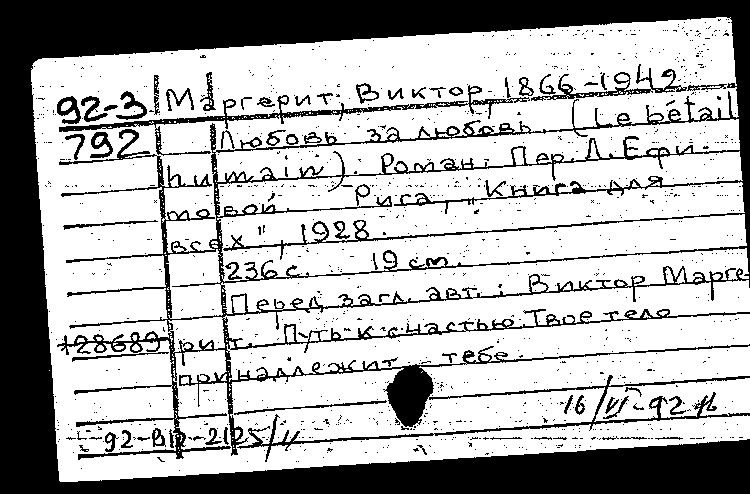 92-3 Маргерит, Виктор, 1866-1942
792 Любовь за любовь. (Le bétail
humain). Роман. Пер. Л. Ефи-
мовой. Рига, „Книга для
всех", 1928.
236 с. 19 см.
Перед загл. авт.: Виктор Марге-
128689 рит. Путь к счастью. Твое тело
принадлежит тебе.
16/VI-92